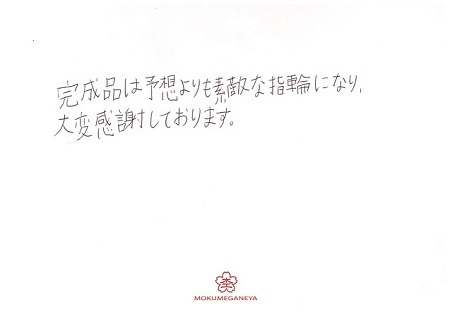 完成品は予想よりも素敵な指輪になり、
大変感謝しております。
MOKUMEGANEYA